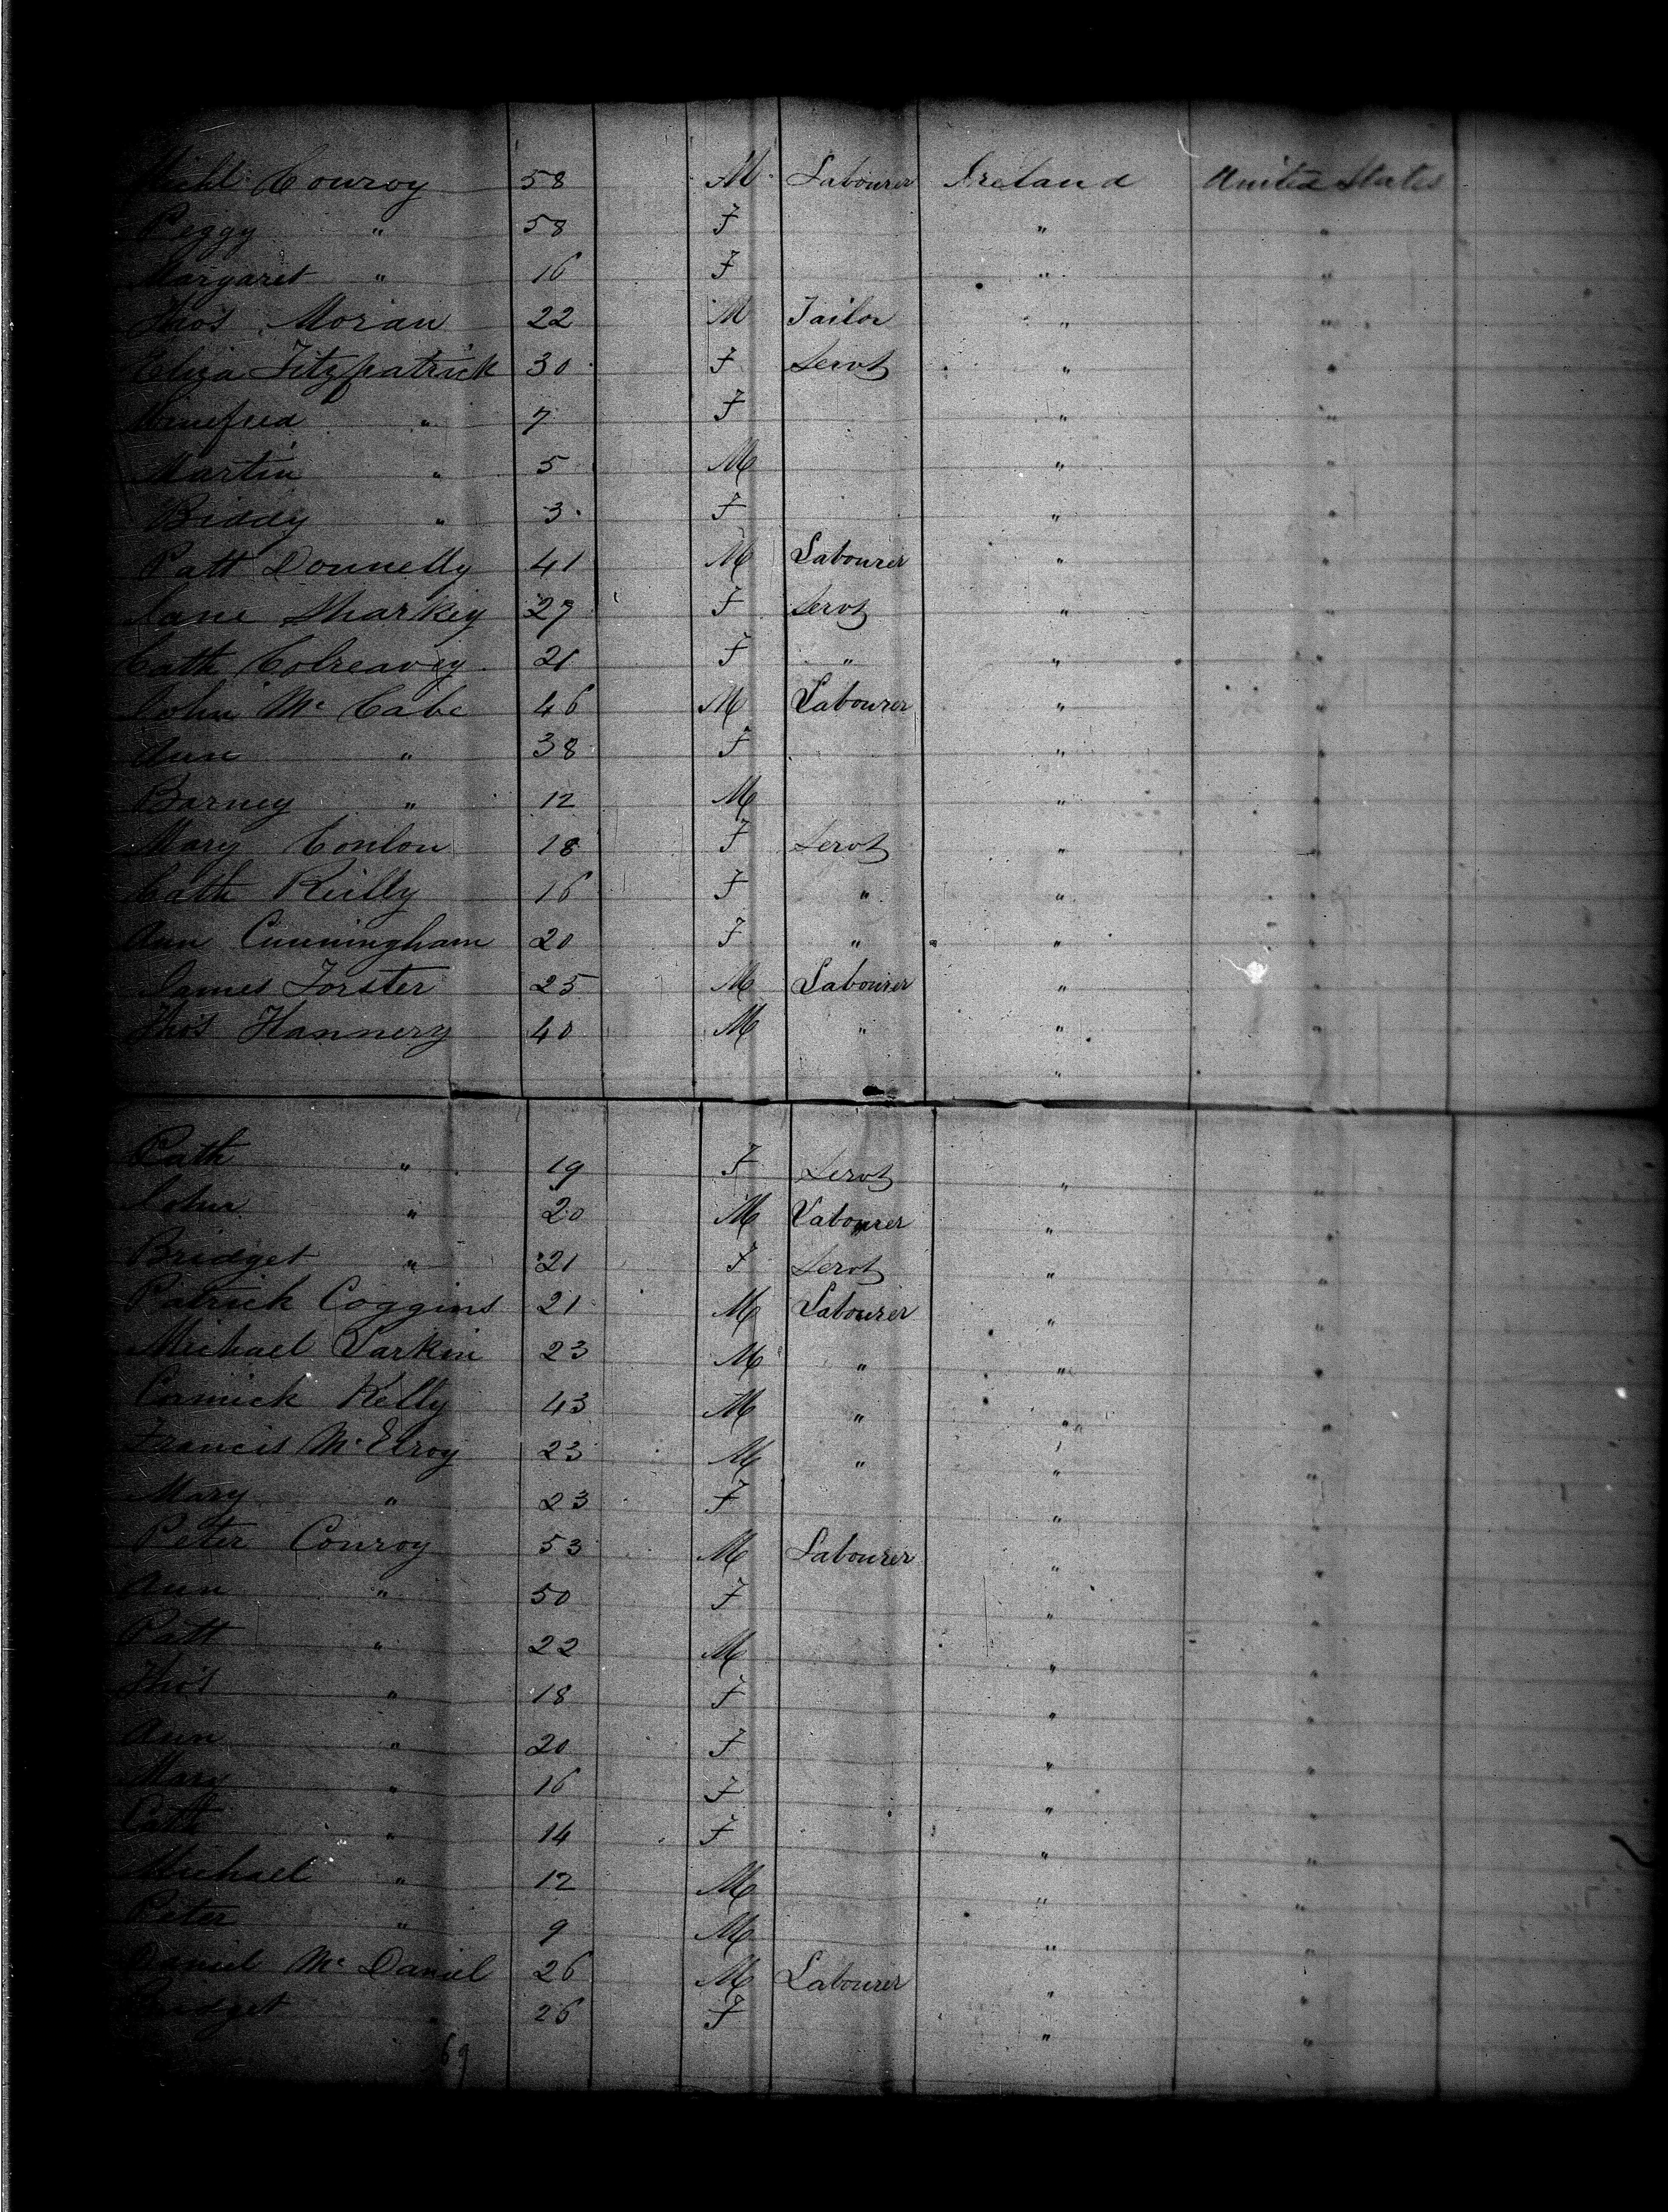 Michl Conroy 58 M Labourer Ireland United States
Peggy " 58 F " "
Margaret " 16 F " "
Thos Moran 22 M Tailor " "
Eliza Fitzpatrick 30 F Servt " "
Winefred " 7 F " "
Martin " 5 M " "
Biddy " 3 F " "
Patt Donnelly 41 M Labourer " "
Jane Sharkey 27 F Servt " "
Cath Colreavey 21 F " " "
John Mc Cabe 46 M Labourer " "
Ann " 38 F " "
Barney " 12 M " "
Mary Conlon 18 F Servt " "
Cath Reilly 16 F " " "
Ann Cunningham 20 F " " "
James Forster 25 M Labourer " "
Thos Hannery 40 M " " "
"
Cath " 19 F Servt " "
John " 20 M Labourer " "
Bridget " 21 F Servt " "
Patrick Coggins 21 M Labourer " "
Michael Larkin 23 M " " "
Cormick Kelly 43 M " " "
Francis McElroy 23 M " " "
Mary " 23 F " "
Peter Conroy 53 M Labourer " "
Ann " 50 F " "
Patt " 22 M " "
Thos " 18 F " "
Ann " 20 F " "
Mary " 16 F " "
Cath " 14 F " "
Michael " 12 M " "
Peter " 9 M " "
Daniel Mc Daniel 26 M Labourer " "
Bridget 26 F " "
69